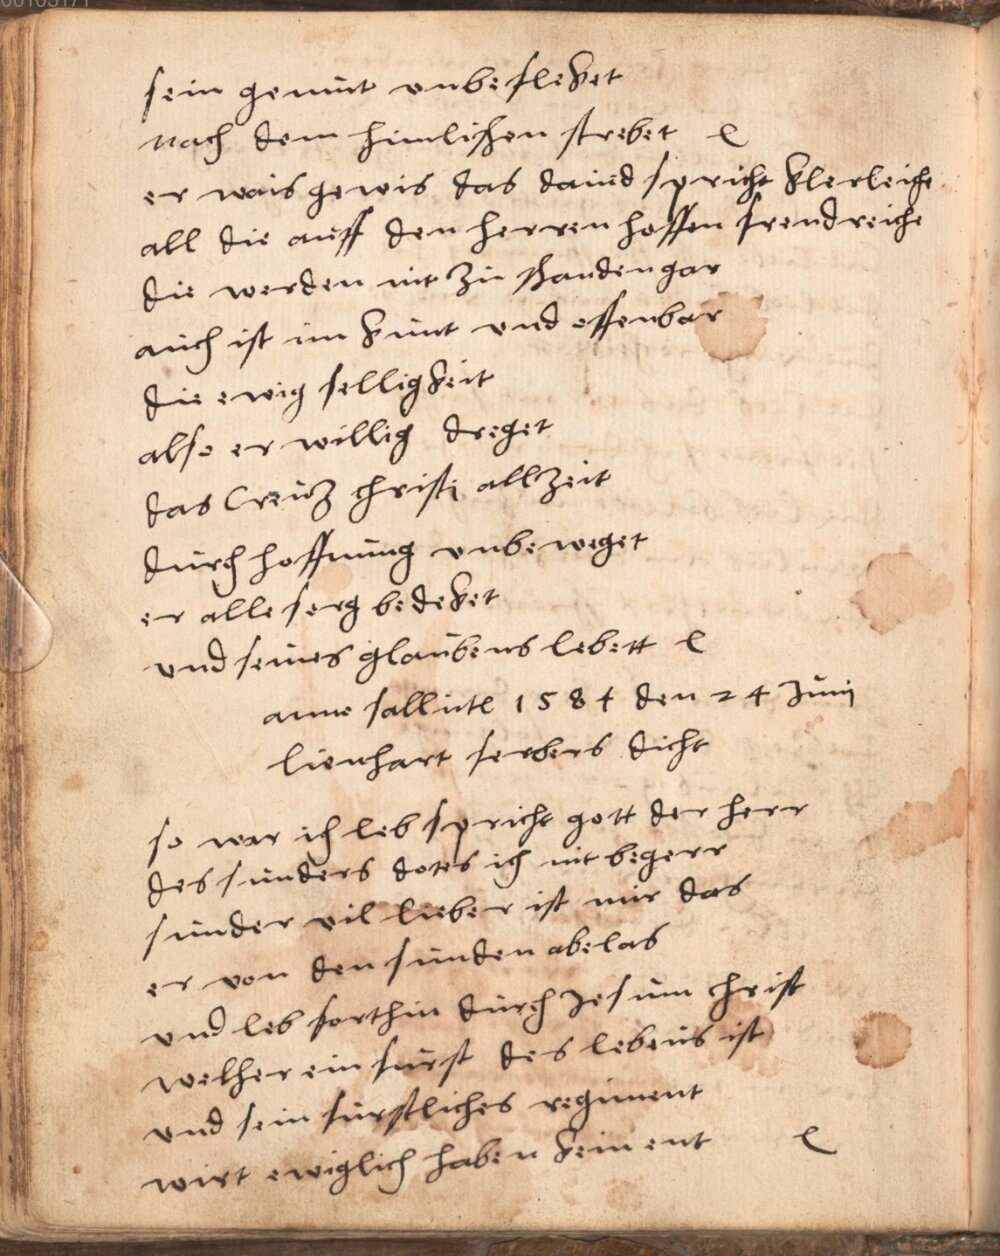 sein gemut unbefleket
nach dem himlischen strebet
er wais gewis das dauid spricht klerleiche
all die auff den herren hoffen freudreiche
die werden nit zu schanden gar
auch ist im kunt und offenbar
die ewig selligkeit
also er willig dreget
das Creutz christi allzeit
durch hoffnung unbeweget
er alle sorg bedeket
und seines glaubens lebett
anno sallutl 1584 den 24 Juni
lienhart ferbers dicht
so war ich leb spricht gott der herr
des sunders dotes ich nit begerr
sunder vil lieber ist mir das
er von den sunden abelas
und leb forthin durch Jesum christ
welher ein furst des lebens ist
und sein furstliches regiment
wirt ewiglich haben kein ent